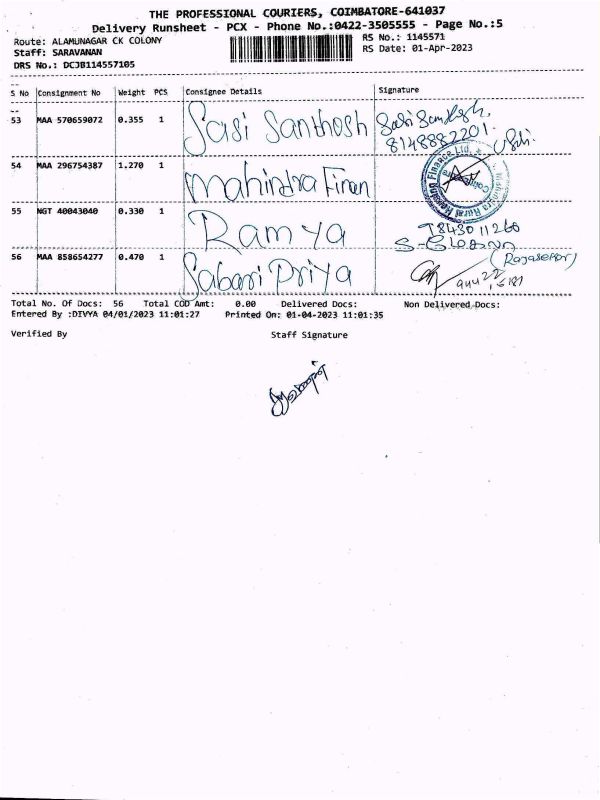 THE PROFESSIONAL COURIERS, COIMBATORE-641037
Delivery Runsheet - PCX - Phone No.:0422-3505555 - Page No.:5
Route: ALAMUNAGAR CK COLONY
RS No.: 1145571
Staff: SARAVANAN
RS Date: 01-Apr-2023
DRS No.: DCJB114557105
S No Consignment No Weight PCS Consignee Details Signature
53 MAA 570659072 0.355 1 Sasi Santhosh
8148882201
54 MAA 296754387 1.270 1 Mahindra Finan
Housing Finance Ltd.
55 NGT 40043040 0.330 1 Ramya
7843011260
56 MAA 858654277 0.470 1 Sabari Priya
(Rajasekar)
Total No. Of Docs: 56 Total COD Amt: 0.00 Delivered Docs: Non Delivered Docs:
Entered By :DIVYA 04/01/2023 11:01:27 Printed On: 01-04-2023 11:01:35
Verified By Staff Signature